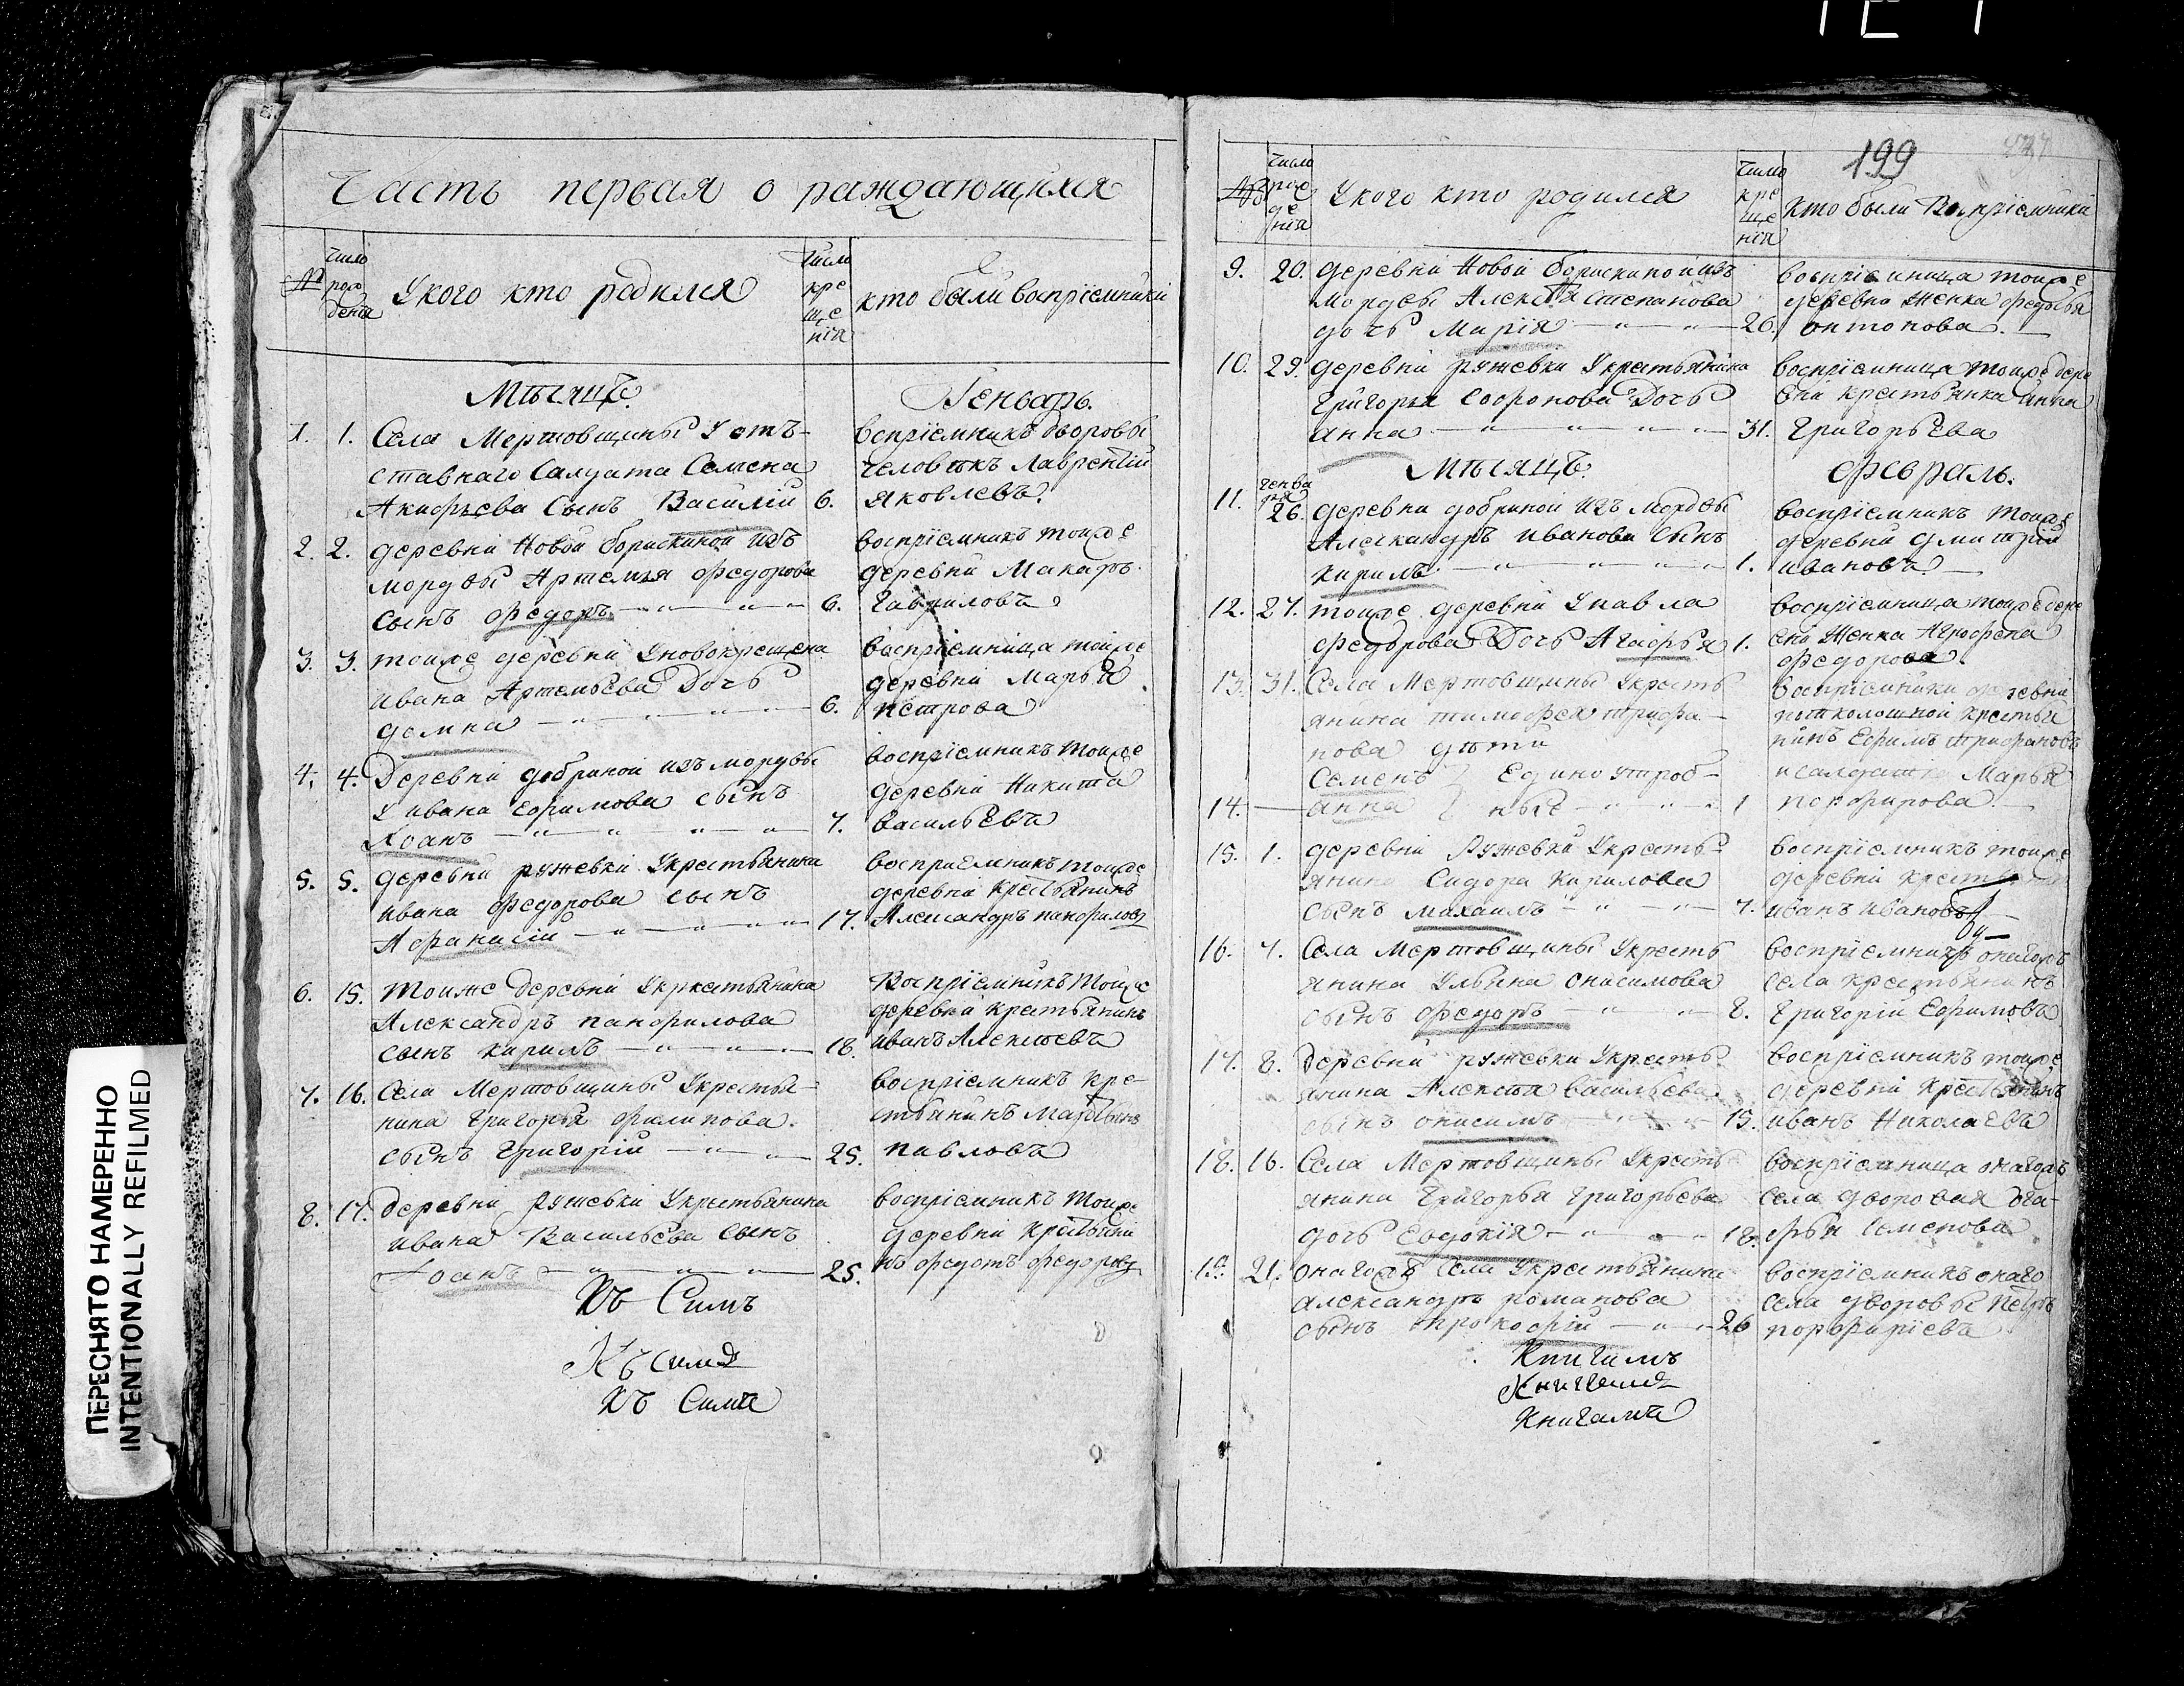 Часть первая о раждающихся
№
число рождения
Укого кто родился
число крещенія
кто были воспріемники
Мѣсяцъ
Генварь.
1. 1. Села Мертовщины У отъ-
ставнаго Салдата Семена
Акифьева Сынъ Василій 6.
воспріемникъ дворовы
человѣкъ Лаврентій
Яковлевъ.
2. 2. деревни Новой борискиной изъ
мордвы Артемья Федорова
сынъ Федоръ 6.
воспріемникъ тоиже
деревни Макаръ
Гавриловъ
3. 3. тоиже деревни Уновокрещена
Ивана Артемьева Дочь
домна 6.
воспріемница тоиже
деревни Марья
петрова
4. 4. Деревни добриной изъ мордвы
У ивана Ефимова сынъ
Иоанъ 7.
воспріемникъ тоиже
деревни Никита
васильевъ
5. 5. деревни ружевки Укрестьянина
ивана Федорова сынъ
Афанасій 17.
воспріемникъ тоиже
деревни крестьянинъ
Александръ панфиловъ
6. 15. Тоиже деревни Укрестьянина
Александръ панфилова
сынъ кирилъ 18.
Воспріемникъ Тоиже
деревни крестьянинъ
иванъ Алексѣевъ
7. 16. Села Мертовщины Укрестья-
нина Григорья филипова.
сынъ Григорій 25.
воспріемникъ кре-
стьянинъ Мартынъ
павловъ
8. 17. деревни ружевки Укрестьянина
ивана Васильева сынъ
Иоанъ 25.
воспріемникъ тоиже
деревни крестьяни
нъ федотъ федоровъ
Къ Симъ
Къ Симъ
Къ Симъ
199
№
число рожденія
Укого кто родился
число крещенія
Кто были Воспріемники
9. 20. деревни Новой борискиной изъ
мордвы Алексѣя Степанова
дочь Марія 26.
воспріемница тоиже
деревни женка федосья
антонова.
10. 29. деревни ружевки Укрестьянина
Григорья Софронова Дочь
анна 31.
воспріемница тоиже дере
вни крестьянка анна
Григорьева
Мѣсяцъ
Февраль.
11. генваря 26. деревни добриной изъ Мордвы
Александръ иванова сынъ
кирилъ 1.
воспріемникъ тоиже
деревни дмитрій
ивановъ.
12. 27. тоиже деревни У павла
федорова Дочь Агафья 1.
воспріемница тоиже дере
вни женка Агрофена
федорова.
13. 31. Села Мертовщины Укресть
янина тимофея трифа-
нова дѣти
Семенъ } Единоутроб-
14. — анна } ные 1
воспріемники деревни
крестья
нинъ Ефимъ трифановъ
и салдатка Марья
порфирова.
15. 1. деревни Ружевки Укресть-
янина Сидора Кирилова
сынъ михаилъ 7.
воспріемникъ тоиже
деревни крестьянинъ
иванъ ивановъ
16. 7. Села Мертовщины Укресть
янина Ульяна онисимова
сынъ федоръ 8.
воспріемникъ онагожъ
села крестьянинъ
Григорій Ефимовъ
17. 8. деревни ружевки Укресть
янина Алексѣя Васильева
сынъ онисимъ 15.
воспріемникъ тоиже
деревни крестьянинъ
иванъ Николаевъ
18. 16. Села Мертовщины Укресть
янина Григорья Григорьева
дочь Евдокія 18.
воспріемница онагожъ
села дворовая ога-
фья семенова
19. 21. онагожъ села Укрестьянина
александръ романова
сынъ прокофій 26
воспріемникъ онаго
села дворовы петръ
порфиріевъ
Книгамъ
Книгамъ
Книгамъ
ПЕРЕСНЯТО НАМЕРЕННО
INTENTIONALLY REFILMED